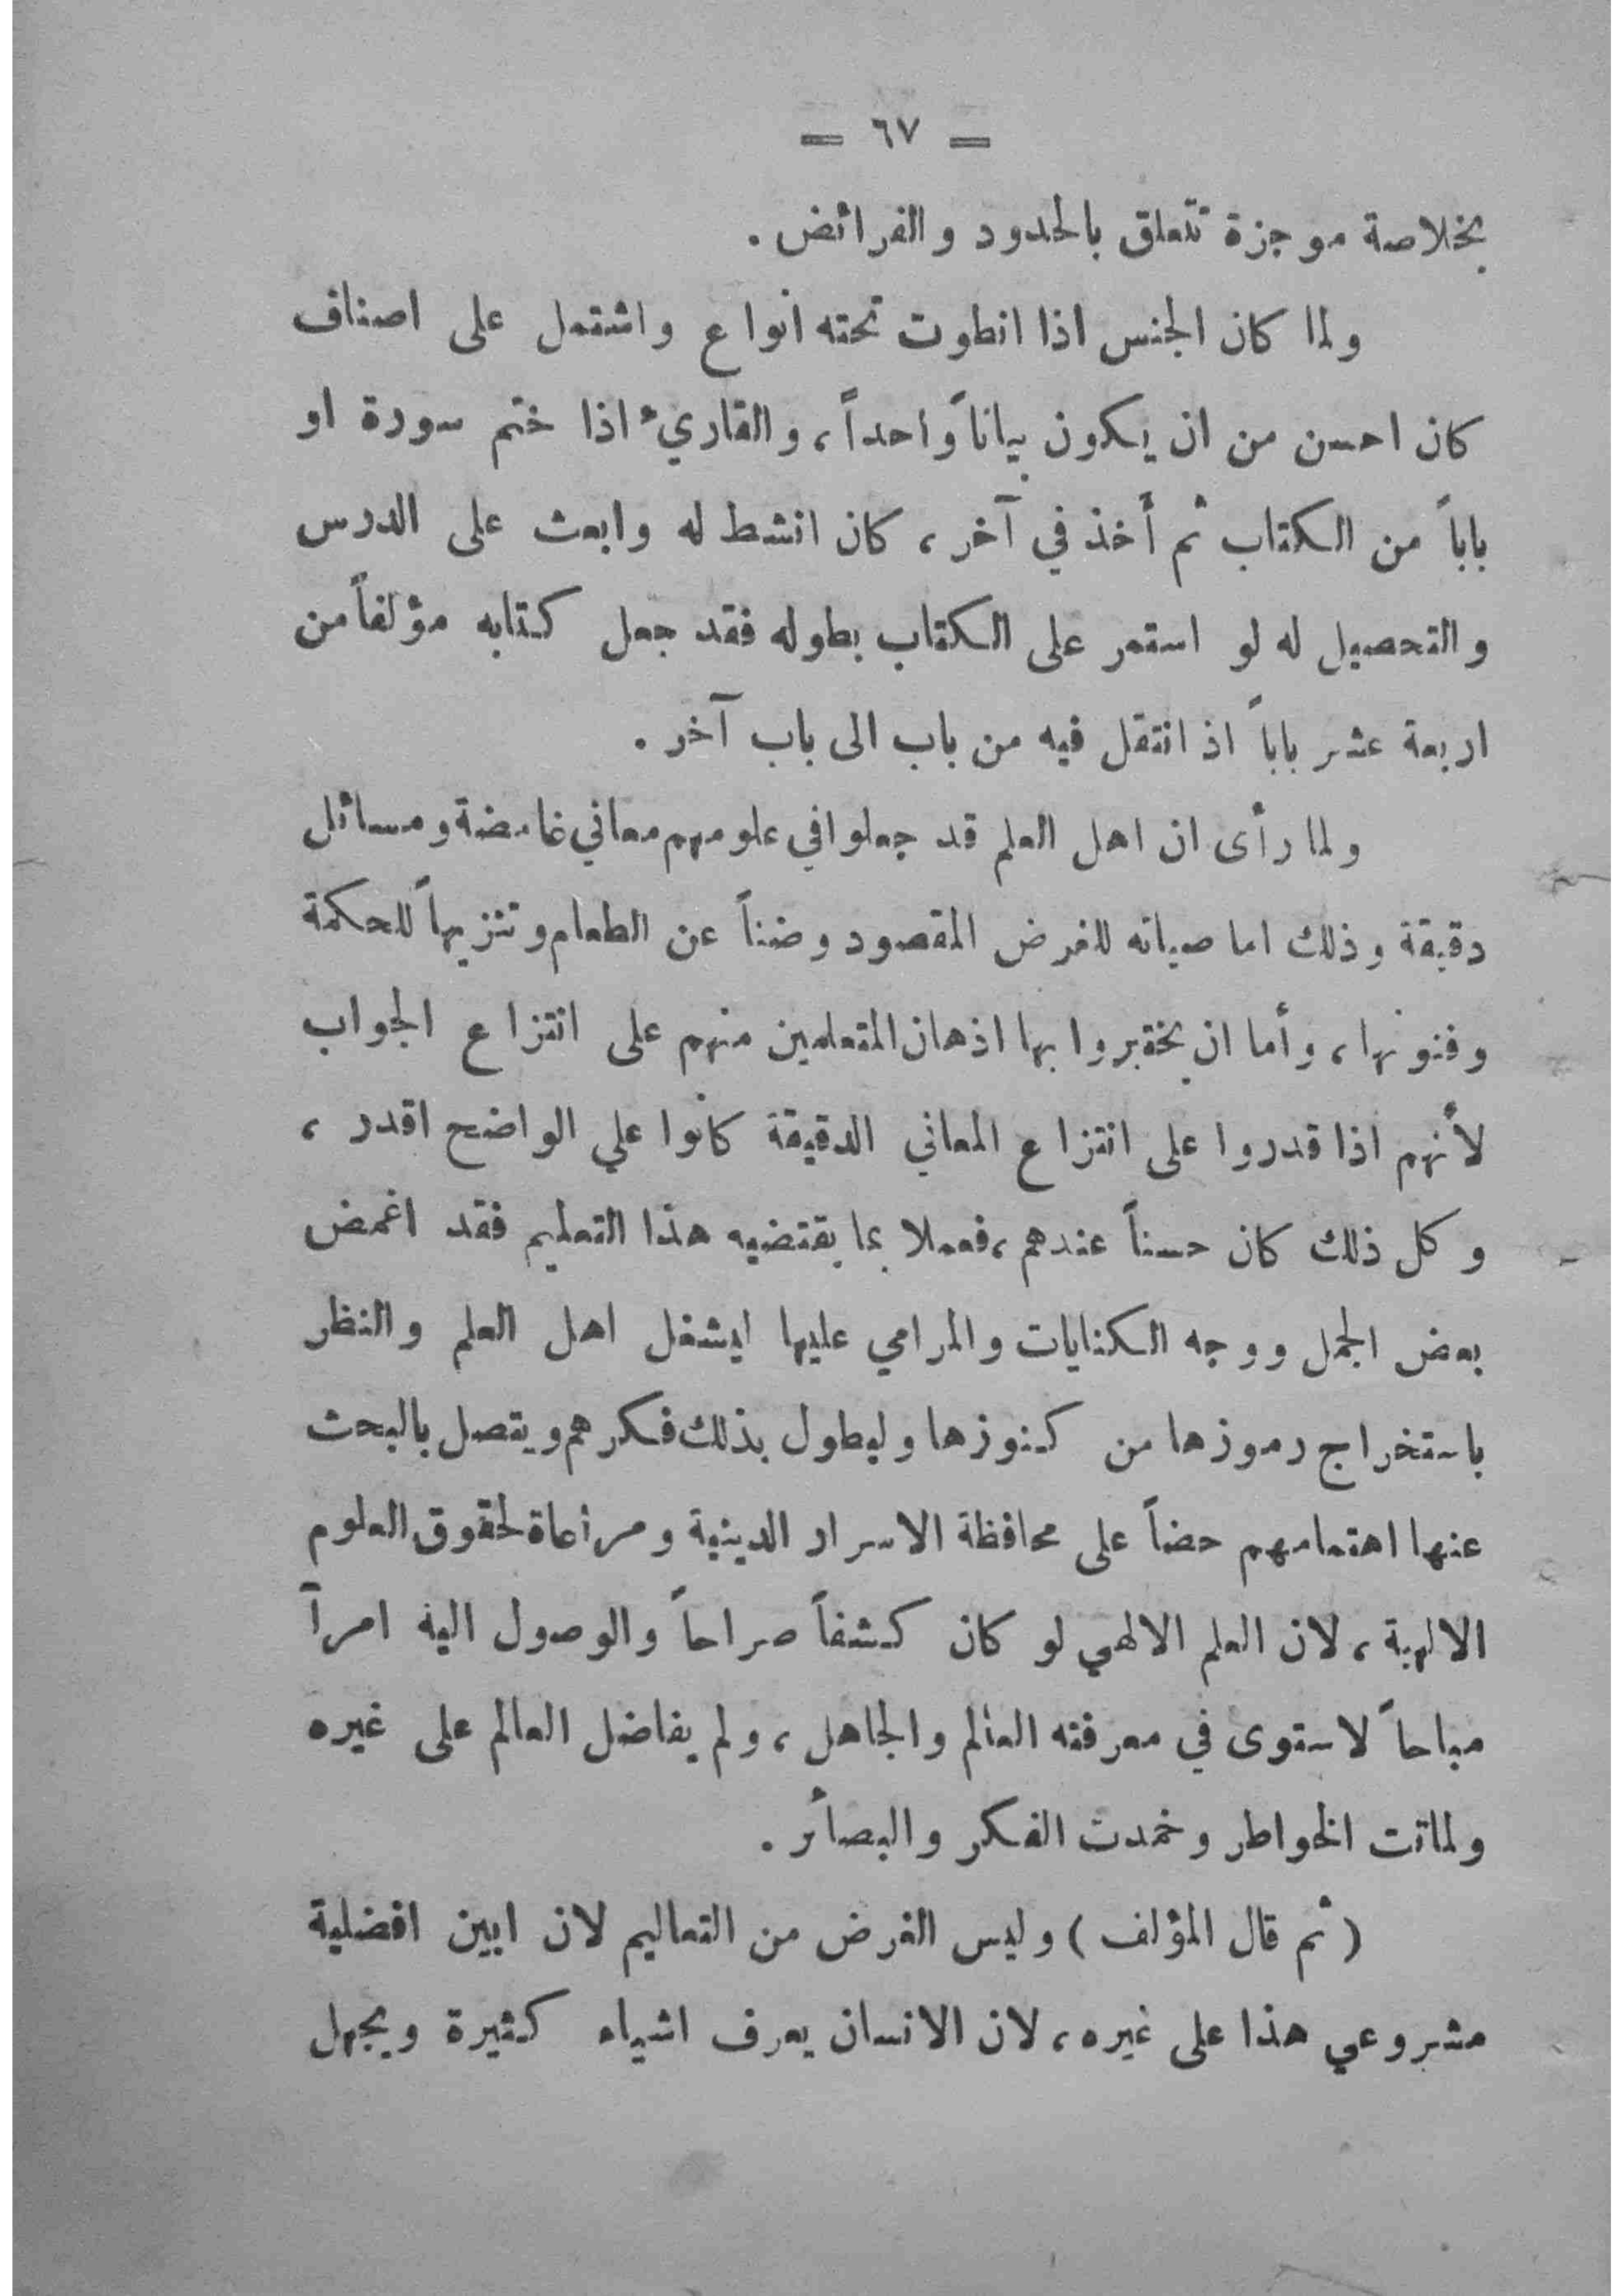 = ٦٧ =
بخلاصة موجزة تتعلق بالحدود والفرائض .
ولما كان الجنس اذا انطوت تحته انواع واشتمل على اصناف
كان احسن من ان يكون بياناً واحداً ، والقاريء اذا ختم سورة او
باباً من الكتاب ثم أخذ في آخر ، كان انشط له وابعث على الدرس
والتحصيل له لو استمر على الكتاب بطوله فقد جعل كتابه مؤلفاً من
اربعة عشر باباً اذ انتقل فيه من باب الى باب آخر .
ولما رأى ان اهل العلم قد جعلوا في علومهم معاني غامضة ومسائل
دقيقة وذلك اما صيانه للغرض المقصود وضناً عن الطعام وتنزيهاً للحكمة
وفنونها ، وأما ان يختبروا بها اذهان المتعلمين منهم على انتزاع الجواب
لأنهم اذا قدروا على انتزاع المعاني الدقيقة كانوا علي الواضح اقدر ،
وكل ذلك كان حسناً عندهم ، فعملا بما يقتضيه هذا التعليم فقد اغمض
بعض الجمل ووجه الكنايات والمرامي عليها ليشغل اهل العلم والنظر
باستخراج رموزها من كنوزها وليطول بذلك فكرهم ويتصل بالبحث
عنها اهتمامهم حضاً على محافظة الاسرار الدينية ومراعاة لحقوق العلوم
الالهية ، لان العلم الالهي لو كان كشفاً صراحاً والوصول اليه امراً
مباحاً لاستوى في معرفته العالم والجاهل ، ولم يفاضل العالم على غيره
ولماتت الخواطر وخمدت الفكر والبصائر .
( ثم قال المؤلف ) وليس الغرض من التعاليم لان ابين افضلية
مشروعي هذا على غيره ، لان الانسان يعرف اشياء كثيرة ويجهل